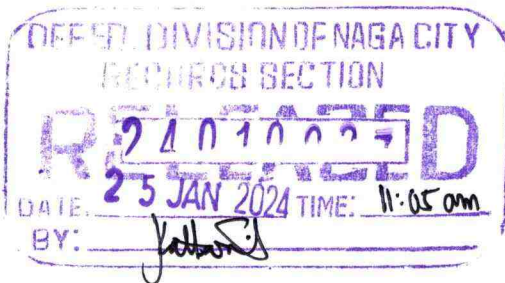 DEPED, DIVISION OF NAGA CITY
RECORDS SECTION
RELEASED
DATE: 25 JAN 2024 TIME: 11:05 am
BY: